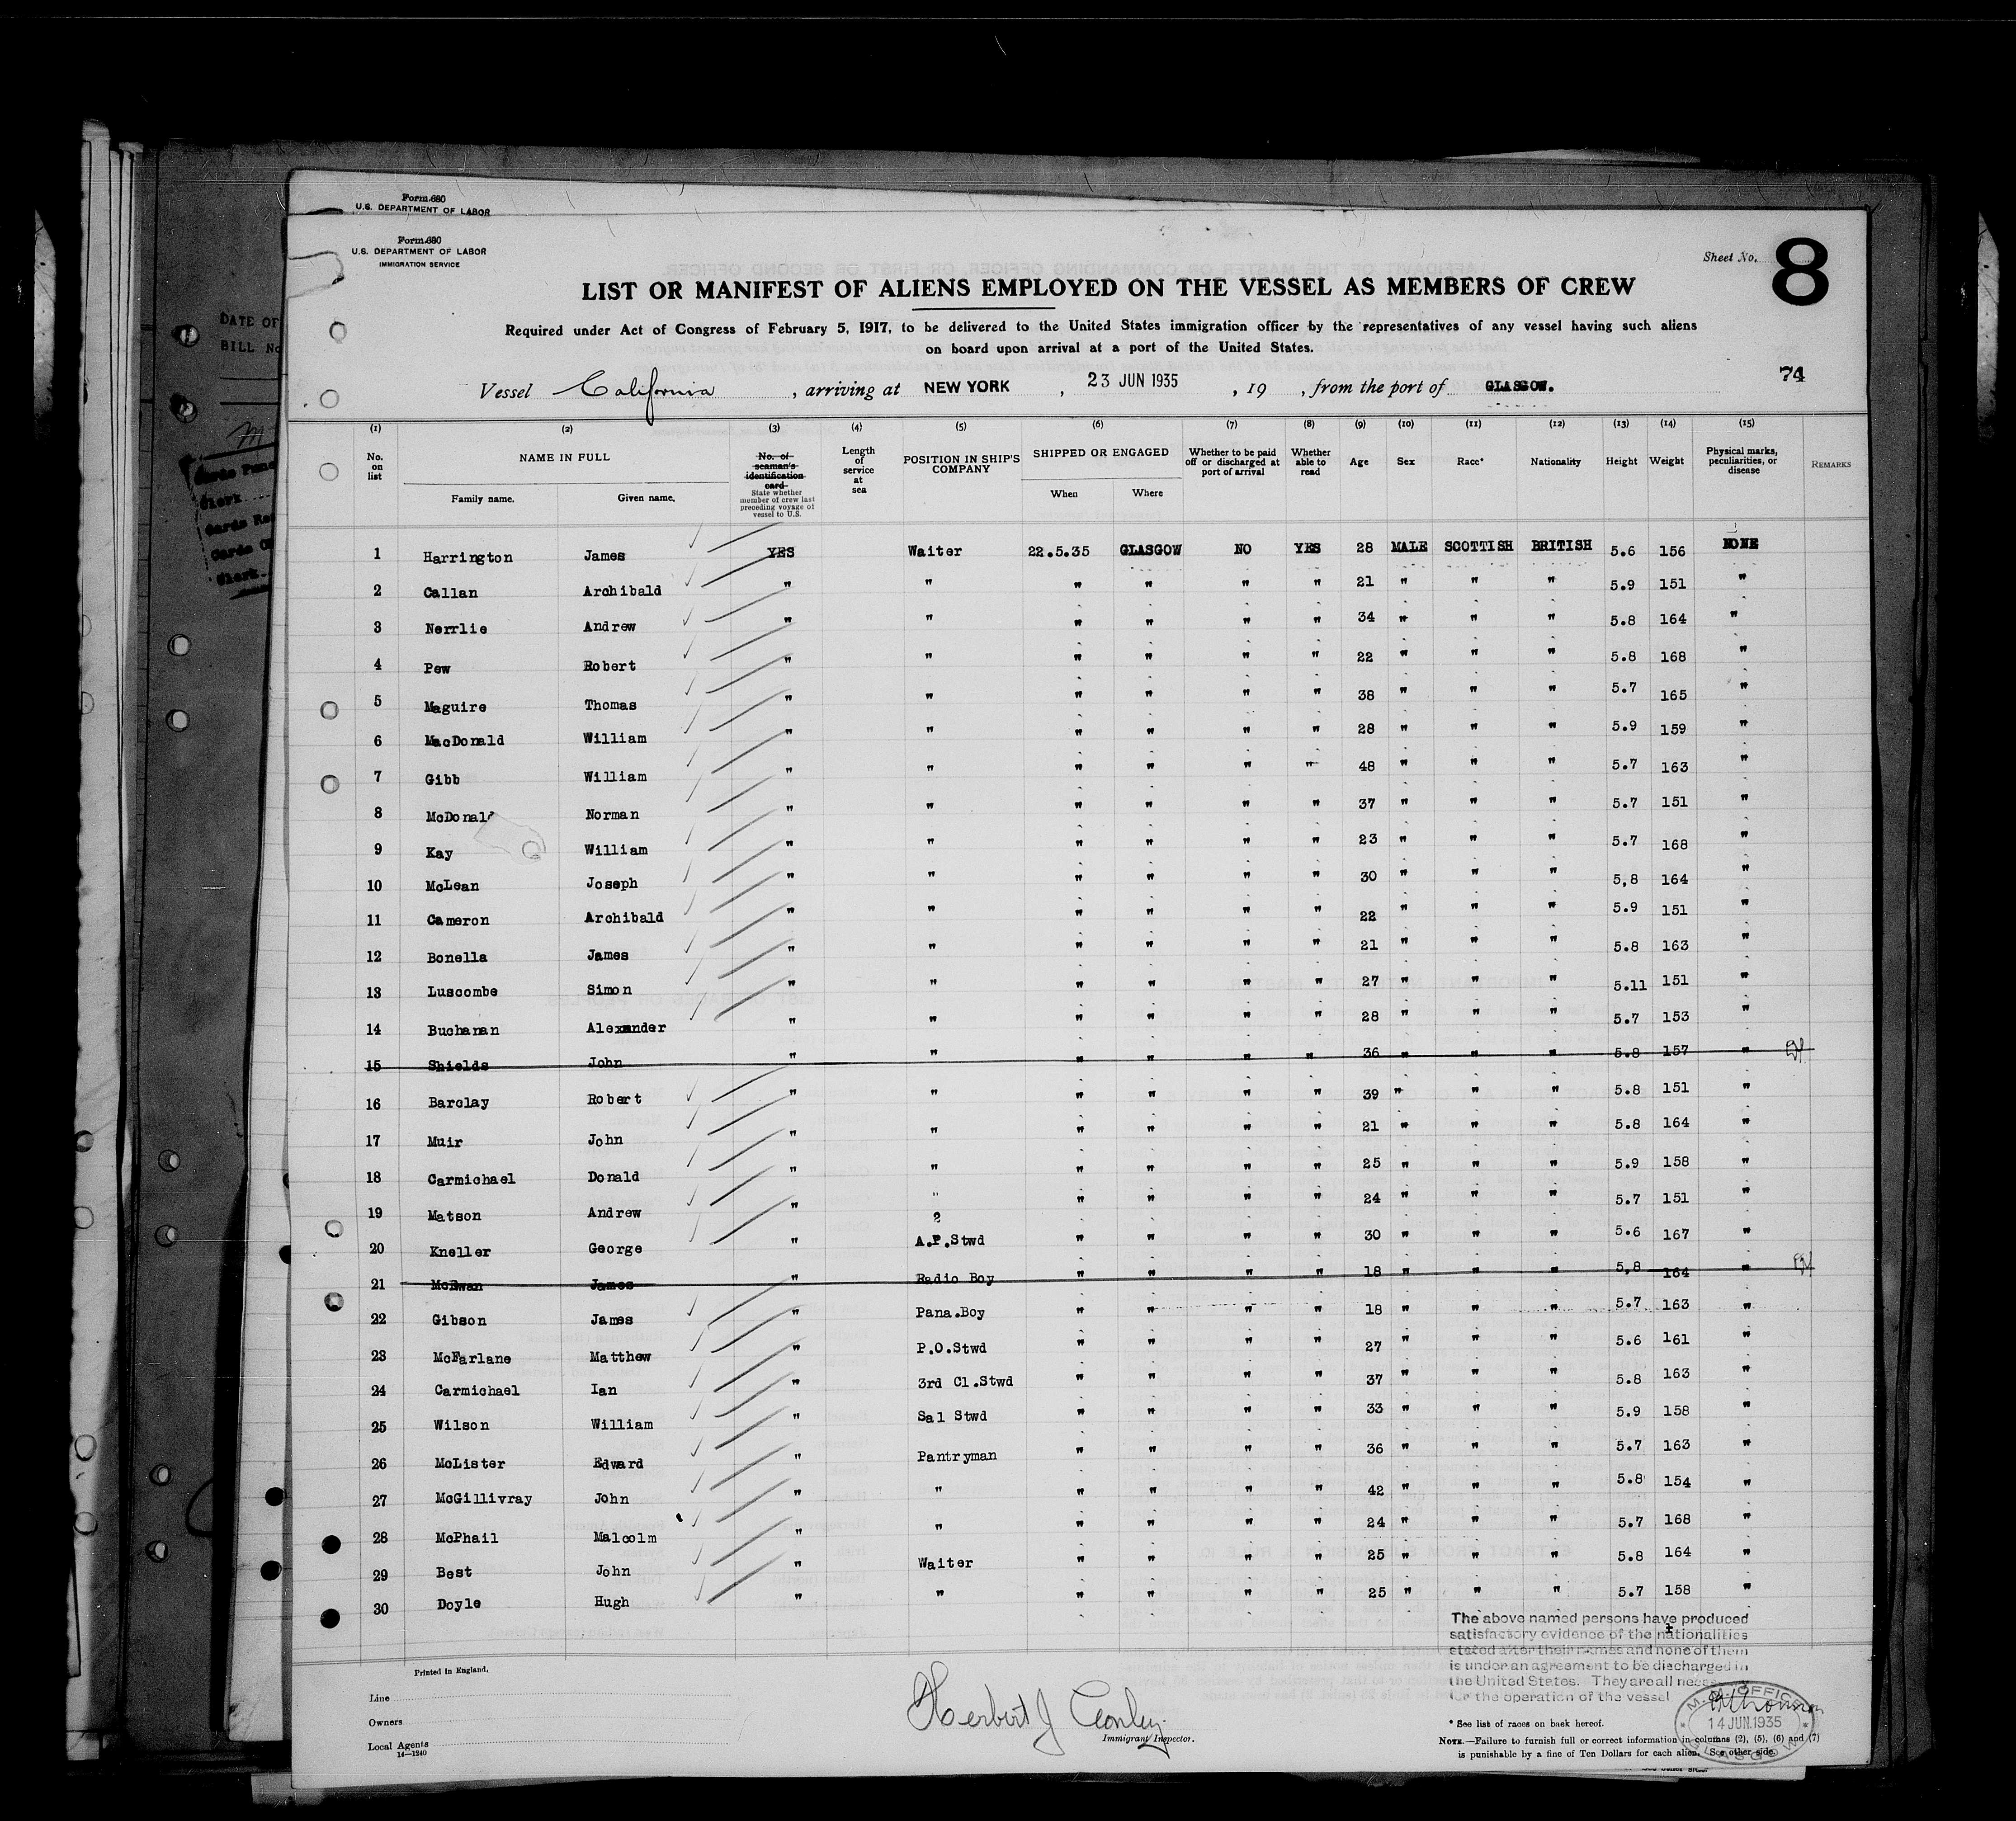 Form 680
U.S. DEPARTMENT OF LABOR
Form 680
U.S. DEPARTMENT OF LABOR
IMMIGRATION SERVICE
Sheet No. 8
LIST OR MANIFEST OF ALIENS EMPLOYED ON THE VESSEL AS MEMBERS OF CREW
Required under Act of Congress of February 5, 1917, to be delivered to the United States immigration officer by the representatives of any vessel having such aliens
on board upon arrival at a port of the United States.
74
Vessel California, arriving at NEW YORK, 23 JUN 1935, 19 , from the port of GLASGOW.
(1) (2) (3) (4) (5) (6) (7) (8) (9) (10) (11) (12) (13) (14) (15)
No. on list
NAME IN FULL
Family name. Given name.
No. of seaman's identification card
State whether member of crew last preceding voyage of vessel to U.S.
Length of service at sea
POSITION IN SHIP'S COMPANY
SHIPPED OR ENGAGED
When Where
Whether to be paid off or discharged at port of arrival
Whether able to read
Age
Sex
Race*
Nationality
Height
Weight
Physical marks, peculiarities, or disease
REMARKS
1 Harrington James YES Waiter 22.5.35 GLASGOW NO YES 28 MALE SCOTTISH BRITISH 5.6 156 NONE
2 Callan Archibald " " " " " " 21 " " " 5.9 151 "
3 Nerrlie Andrew " " " " " " 34 " " " 5.8 164 "
4 Pew Robert " " " " " " 22 " " " 5.8 168 "
5 Maguire Thomas " " " " " " 38 " " " 5.7 165 "
6 MacDonald William " " " " " " 28 " " " 5.9 159 "
7 Gibb William " " " " " " 48 " " " 5.7 163 "
8 McDonald Norman " " " " " " 37 " " " 5.7 151 "
9 Kay William " " " " " " 23 " " " 5.7 168 "
10 McLean Joseph " " " " " " 30 " " " 5,8 164 "
11 Cameron Archibald " " " " " " 22 " " " 5.9 151 "
12 Bonella James " " " " " " 21 " " " 5.8 163 "
13 Luscombe Simon " " " " " " 27 " " " 5.11 151 "
14 Buchanan Alexander " " " " " " 28 " " " 5.7 153 "
15 Shields John " " " " " " 36 " " " 5.8 157 "
16 Barclay Robert " " " " " " 39 " " " 5.8 151 "
17 Muir John " " " " " " 21 " " " 5.8 164 "
18 Carmichael Donald " " " " " " 25 " " " 5.9 158 "
19 Matson Andrew " " " " " " 24 " " " 5.7 151 "
20 Kneller George " A.P.Stwd " " " " 30 " " " 5.6 167 "
21 McEwan James " Radio Boy " " " " 18 " " " 5,8 164 "
22 Gibson James " Pana.Boy " " " " 18 " " " 5.7 163 "
23 McFarlane Matthew " P.O.Stwd " " " " 27 " " " 5.6 161 "
24 Carmichael Ian " 3rd Cl.Stwd " " " " 37 " " " 5.8 163 "
25 Wilson William " Sal Stwd " " " " 33 " " " 5.9 158 "
26 McLister Edward " Pantryman " " " " 36 " " " 5.7 163 "
27 McGillivray John " " " " " " 42 " " " 5.8 154 "
28 McPhail Malcolm " " " " " " 24 " " " 5.7 168 "
29 Best John " Waiter " " " " 25 " " " 5.8 164 "
30 Doyle Hugh " " " " " " 25 " " " 5.7 158 "
The above named persons have produced
satisfactory evidence of the nationalities
stated after their names and none of them
is under an agreement to be discharged in
the United States. They are all neces
for the operation of the vessel
Printed in England.
Line
Owners
Local Agents
14—1240
Herbert J
Immigrant Inspector.
M.M. OFFICE
14 JUN. 1935
GLASGOW
* See list of races on back hereof.
NOTE.—Failure to furnish full or correct information in columns (2), (5), (6) and (7)
is punishable by a fine of Ten Dollars for each alien. See other side.
DATE OF
BILL No
Clerk
Clerk